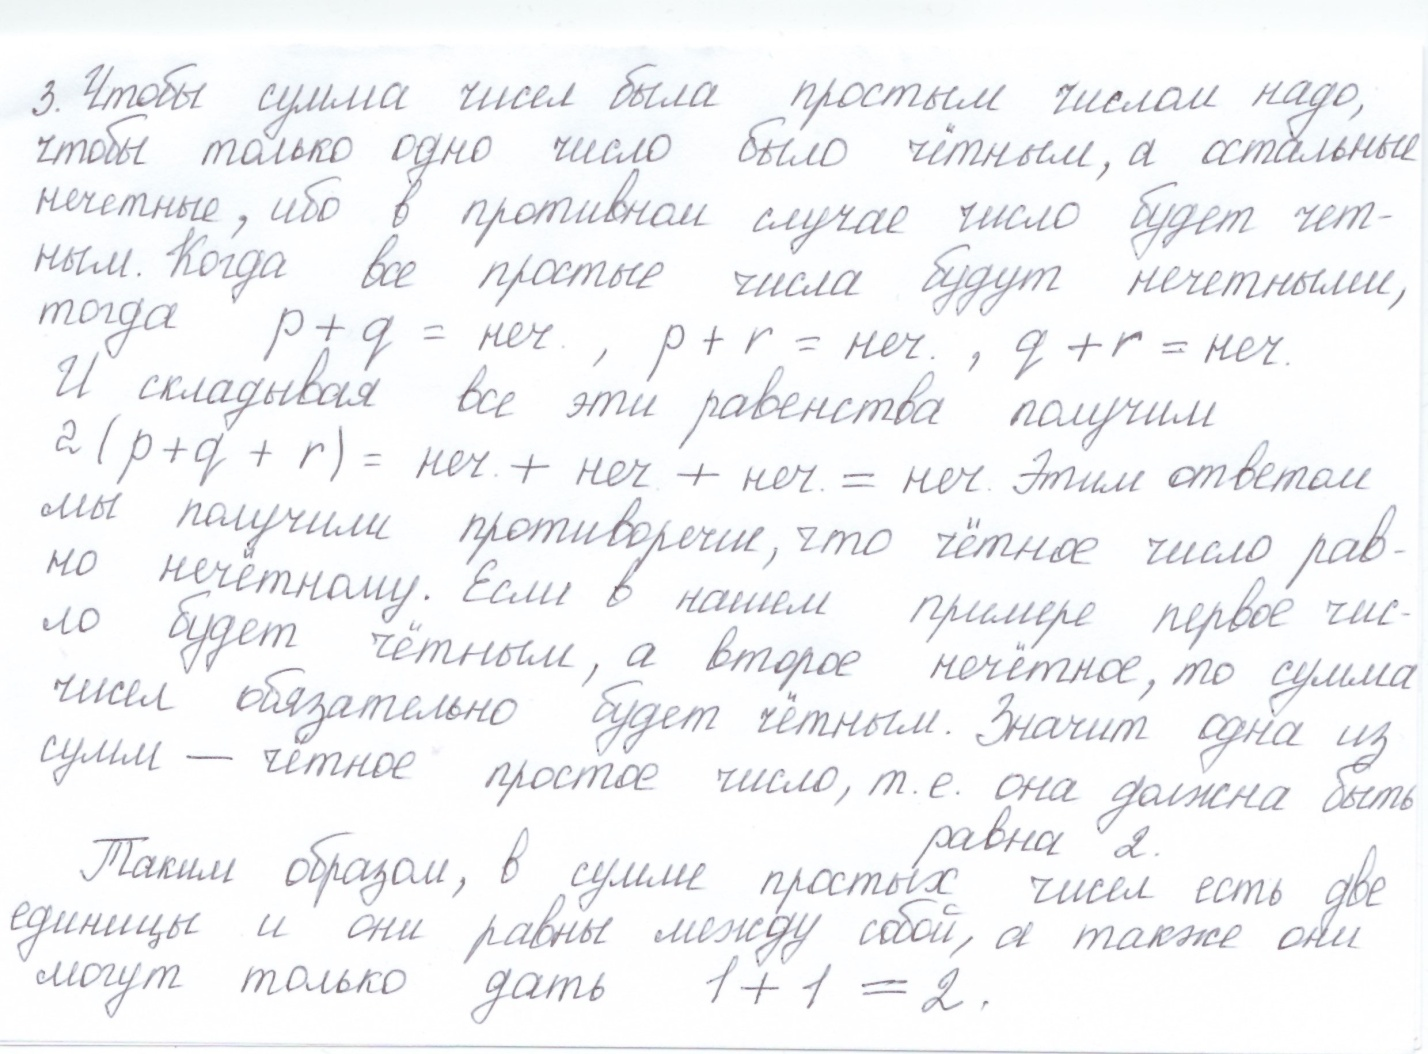 3. Чтобы сумма чисел была простым числом надо,
чтобы только одно число было чётным, а остальные
нечетные, ибо в противном случае число будет чет-
ным. Когда все простые числа будут нечетными,
тогда p + q = неч. , p + r = неч. , q + r = неч.
И складывая все эти равенства получим
2 (p + q + r) = неч. + неч + неч. = неч. Этим ответом
мы получили противоречие, что чётное число рав-
но нечётному. Если в нашем примере первое чис-
ло будет чётным, а второе нечётное, то сумма
чисел обязательно будет чётным. Значит одна из
сумм — чётное простое число, т.е. она должна быть
равна 2.
Таким образом, в сумме простых чисел есть две
единицы и они равны между собой, а также они
могут только дать 1 + 1 = 2.